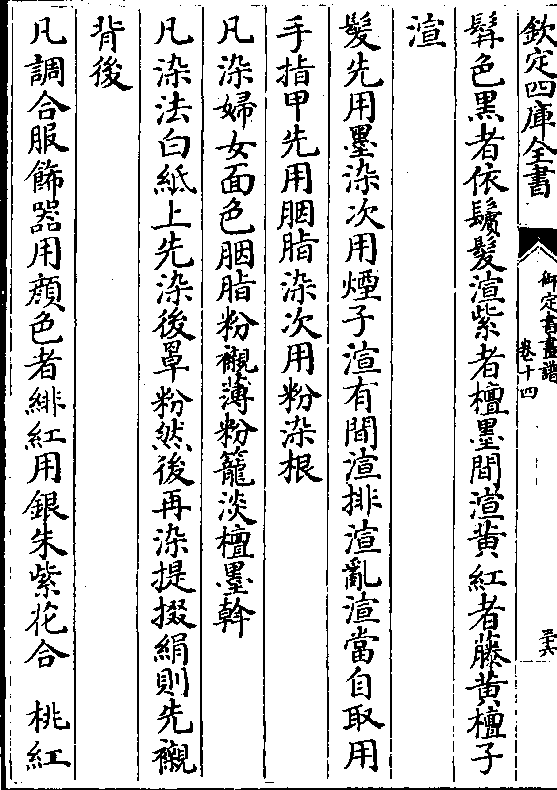 欽定四庫全書
御定書畫譜
卷十四
三十六
髯色黑者依鬚髮渲紫者檀墨間渲黄紅者藤黄檀子
渲
髮先用墨染次用煙子渲有間渲排渲亂渲當自取用
手指甲先用胭脂染次用粉染根
凡染婦女面色胭脂粉襯薄粉籠淡檀墨斡
凡染法白紙上先染後罩粉然後再染提掇絹則先襯
背後
凡調合服飾器用顔色者緋紅用銀朱紫花合　桃紅